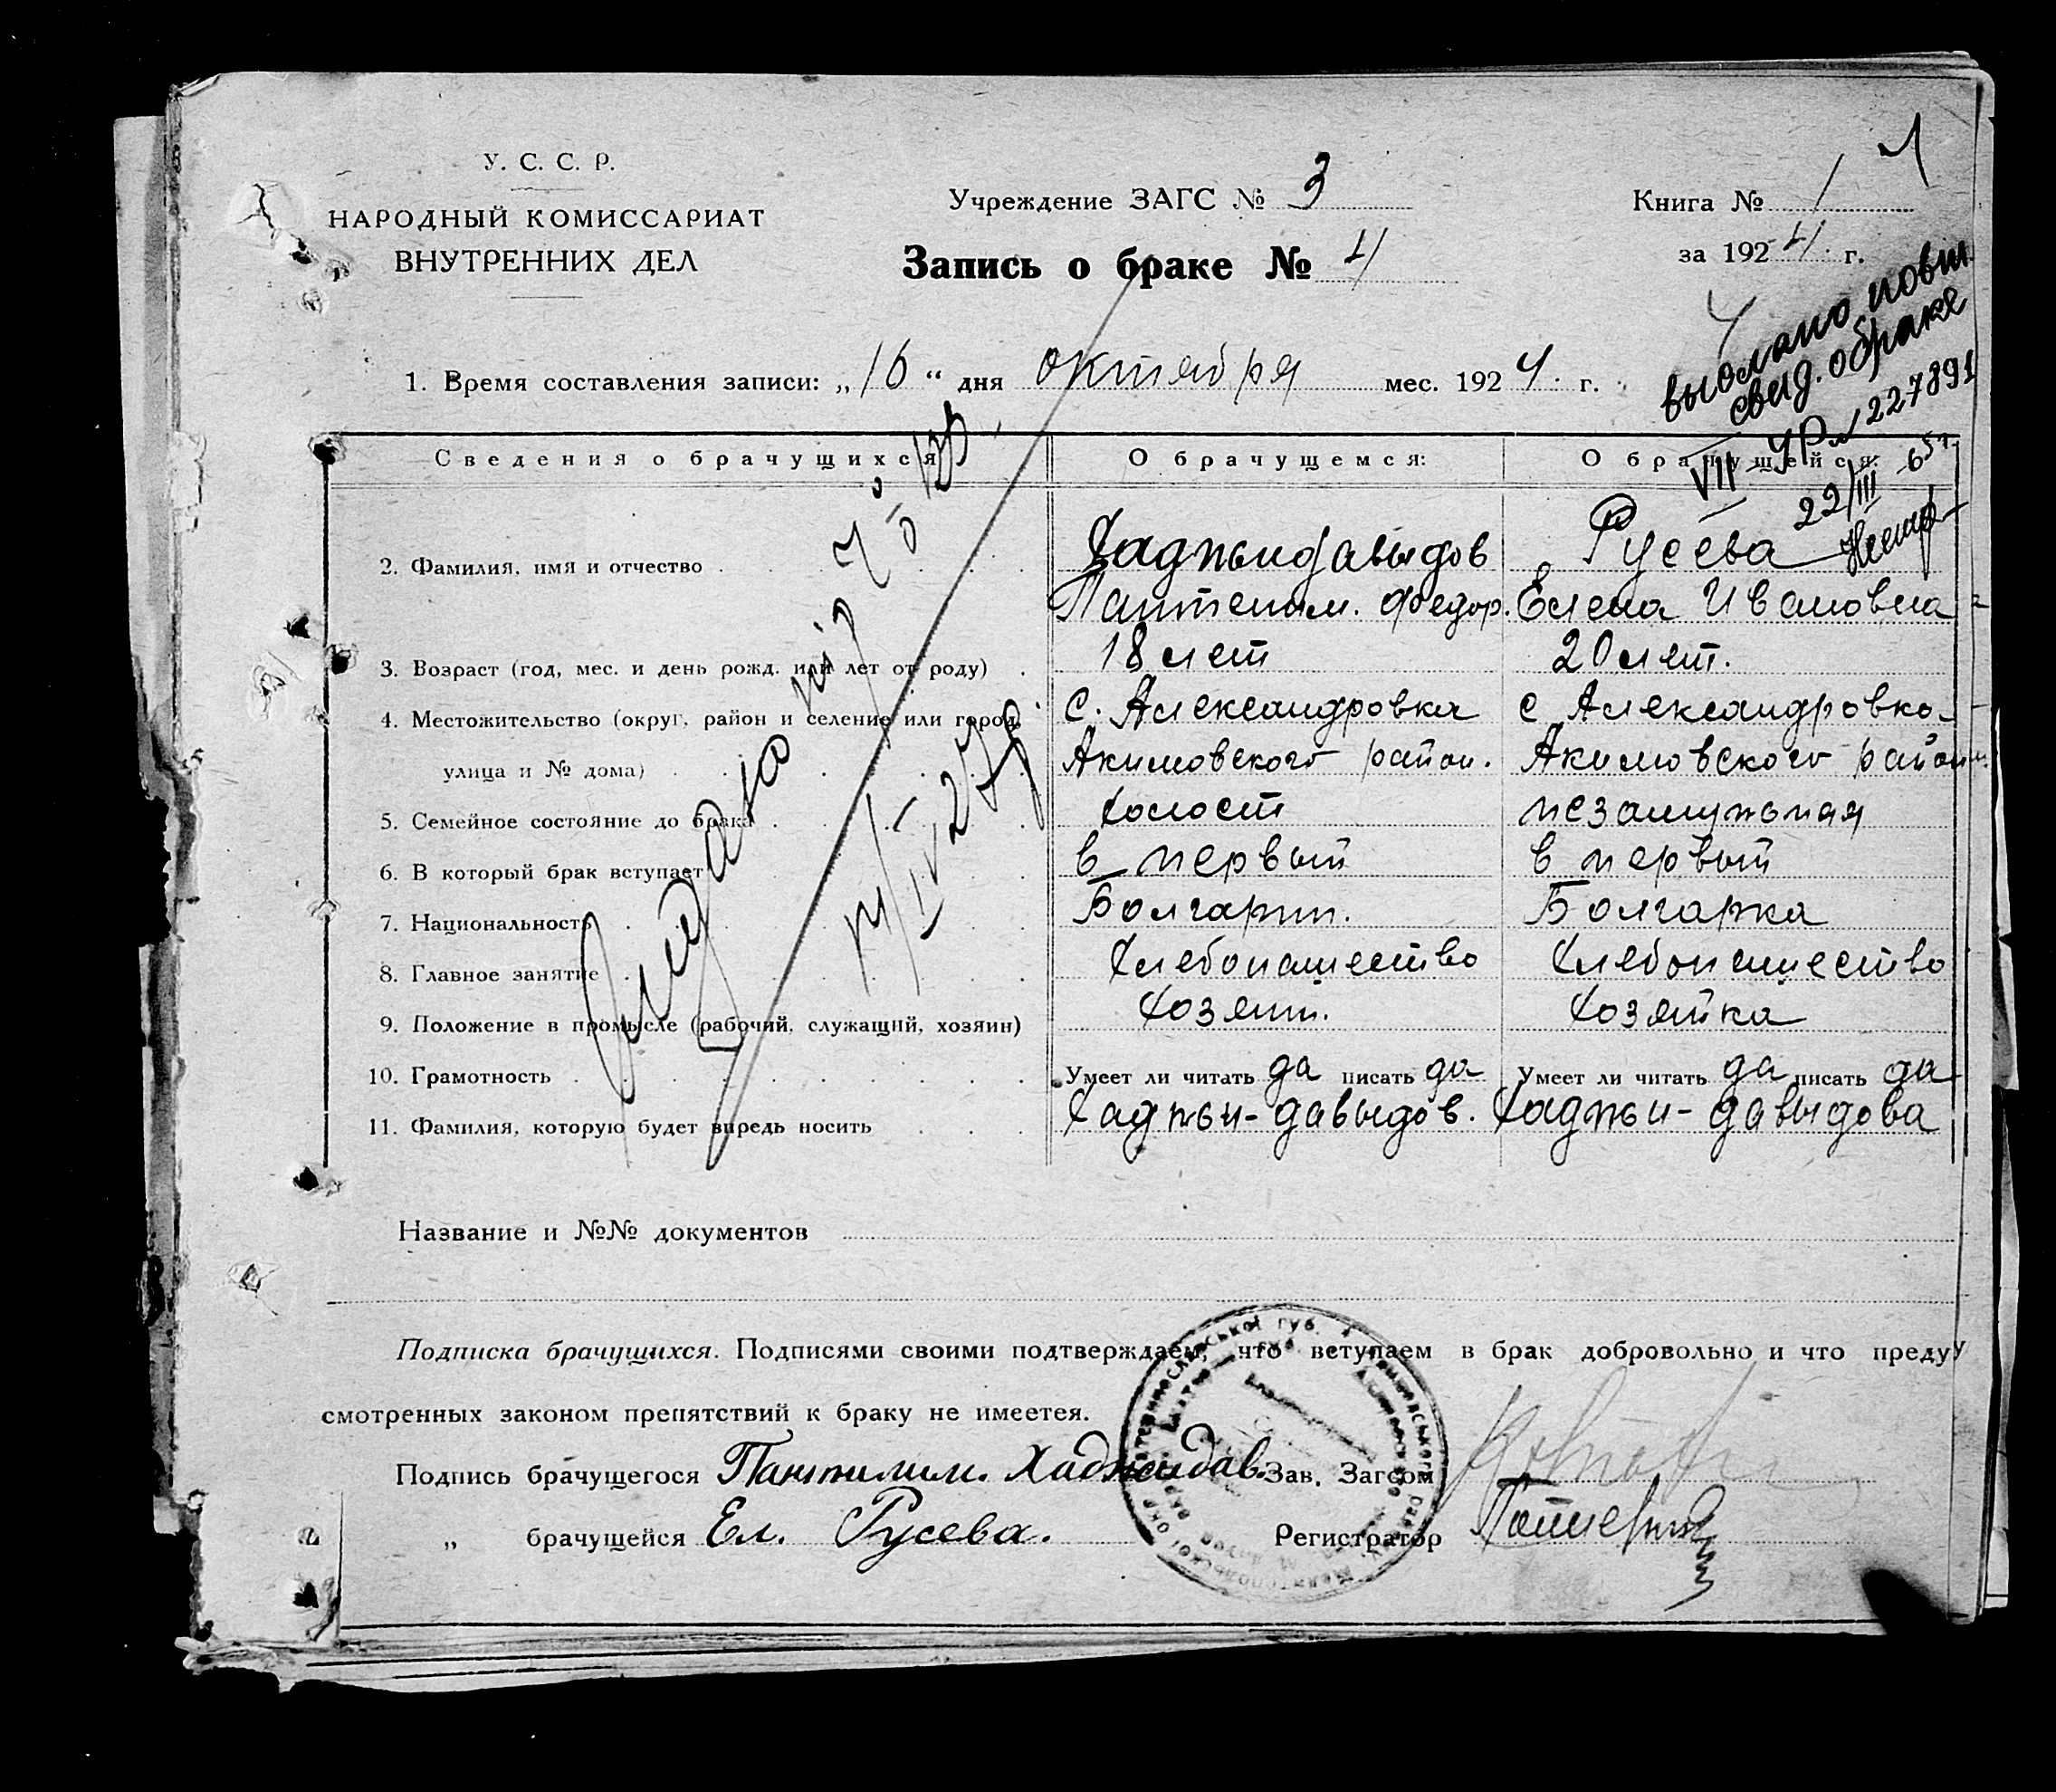 1
У. С. С. Р.
НАРОДНЫЙ КОМИССАРИАТ
ВНУТРЕННИХ ДЕЛ
Учреждение ЗАГС № 3
Запись о браке № 4
Книга № 1
за 1924 г.
выслано повт.
свид. о браке
VII-УР № 227891
22/III-65г.
1. Время составления записи: „16“ дня октября мес. 1924 г.
Сведения о брачущихся
О брачущемся:
О брачущейся:
2. Фамилия, имя и отчество
Хаджыдавыдов
Русева
Пантелим. Федор.
Елена Ивановна
3. Возраст (год, мес. и день рожд. или лет от роду)
18 лет
20 лет.
4. Местожительство (округ, район и селение или город,
с. Александровка
с Александровка
улица и № дома)
Акимовского район.
Акимовского район.
5. Семейное состояние до брака
Холост
незамужная
6. В который брак вступает
в первый
в первый
7. Национальность
Болгарин.
Болгарка
8. Главное занятие
Хлебопашество
Хлебопашество
9. Положение в промысле (рабочий, служащий, хозяин)
Хозяин.
Хозяйка
10. Грамотность
Умеет ли читать да писать да
Умеет ли читать да писать да
11. Фамилия, которую будет впредь носить
Хаджы-давыдов.
Хаджы-давыдова
Название и №№ документов
Подписка брачущихся. Подписями своими подтверждаем, что вступаем в брак добровольно и что преду
смотренных законом препятствий к браку не имеется.
Подпись брачущегося Пантилим. Хаджидав.
Зав. Загсом
„ брачущейся Ел. Русева.
Регистратор